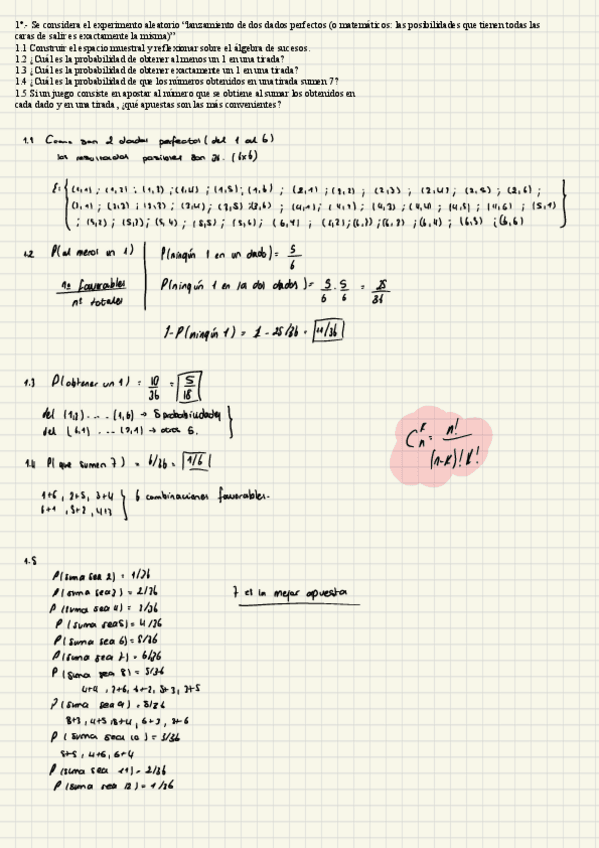 1º.- Se considera el experimento aleatorio “lanzamiento de dos dados perfectos (o matemáticos: las posibilidades que tienen todas las
caras de salir es exactamente la misma)”
1.1 Construir el espacio muestral y reflexionar sobre el álgebra de sucesos.
1.2 ¿Cuál es la probabilidad de obtener al menos un 1 en una tirada?
1.3 ¿Cuál es la probabilidad de obtener exactamente un 1 en una tirada?
1.4 ¿Cuál es la probabilidad de que los números obtenidos en una tirada sumen 7?
1.5 Si un juego consiste en apostar al número que se obtiene al sumar los obtenidos en
cada dado y en una tirada, ¿qué apuestas son las más convenientes?
1.1 Como son 2 dados perfectos (del 1 al 6)
los resultados posibles son 36. (6x6)
E = { (1,1) ; (1,2) ; (1,3) ; (1,4) ; (1,5) ; (1,6) ; (2,1) ; (2,2) ; (2,3) ; (2,4) ; (2,5) ; (2,6) ;
(3,1) ; (3,2) ; (3,3) ; (3,4) ; (3,5) ; (3,6) ; (4,1) ; (4,2) ; (4,3) ; (4,4) ; (4,5) ; (4,6) ; (5,1)
; (5,2) ; (5,3) ; (5,4) ; (5,5) ; (5,6) ; (6,1) ; (6,2) ; (6,3) ; (6,4) ; (6,5) ; (6,6) }
1.2 P(al menos un 1)
nº favorables
nº totales
P(ningún 1 en un dado) = 5/6
P(ningún 1 en los dos dados) = 5/6 · 5/6 = 25/36
1 - P(ningún 1) = 1 - 25/36 = 11/36
1.3 P(obtener un 1) = 10/36 = 5/18
del (1,2) ... (1,6) → 5 probabilidades
del (6,1) ... (2,1) → otros 5.
C n k = n! / (n-k)! k!
1.4 P(que sumen 7) = 6/36 = 1/6
1+6, 2+5, 3+4
6+1, 5+2, 4+3 } 6 combinaciones favorables.
1.5
P(suma sea 2) = 1/36
P(suma sea 3) = 2/36
P(suma sea 4) = 3/36
P(suma sea 5) = 4/36
P(suma sea 6) = 5/36
P(suma sea 7) = 6/36
P(suma sea 8) = 5/36
4+4, 2+6, 6+2, 5+3, 3+5
P(suma sea 9)
P(suma sea 10) = 3/36
5+5, 4+6, 6+4
P(suma sea 11) = 2/36
P(suma sea 12) = 1/36
7 es la mejor apuesta